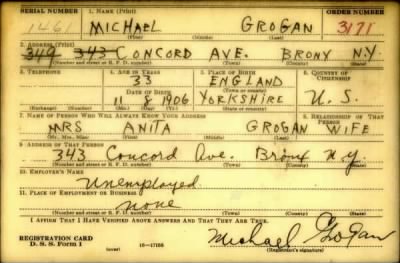 SERIAL NUMBER 1. NAME (Print) ORDER NUMBER
1461 MICHAEL GROGAN 3171
(First) (Middle) (Last)
2. ADDRESS (Print)
349 343 CONCORD AVE. BRONX N.Y.
(Number and street or R. F. D. number) (Town) (County) (State)
3. TELEPHONE 4. AGE IN YEARS 5. PLACE OF BIRTH 6. COUNTRY OF CITIZENSHIP
33 ENGLAND
DATE OF BIRTH (Town or county)
11 8 1906 YORKSHIRE U. S.
(Exchange) (Number) (Mo.) (Day) (Yr.) (State or country)
7. NAME OF PERSON WHO WILL ALWAYS KNOW YOUR ADDRESS 8. RELATIONSHIP OF THAT PERSON
MRS ANITA GROGAN WIFE
(Mr., Mrs., Miss) (First) (Middle) (Last)
9. ADDRESS OF THAT PERSON
343 Concord Ave. Bronx N.Y.
(Number and street or R. F. D. number) (Town) (County) (State)
10. EMPLOYER'S NAME
Unemployed
11. PLACE OF EMPLOYMENT OR BUSINESS
none
(Number and street or R. F. D. number) (Town) (County) (State)
I AFFIRM THAT I HAVE VERIFIED ABOVE ANSWERS AND THAT THEY ARE TRUE.
REGISTRATION CARD
D. S. S. Form 1 (over) 16—17105 Michael Grogan
(Registrant's signature)